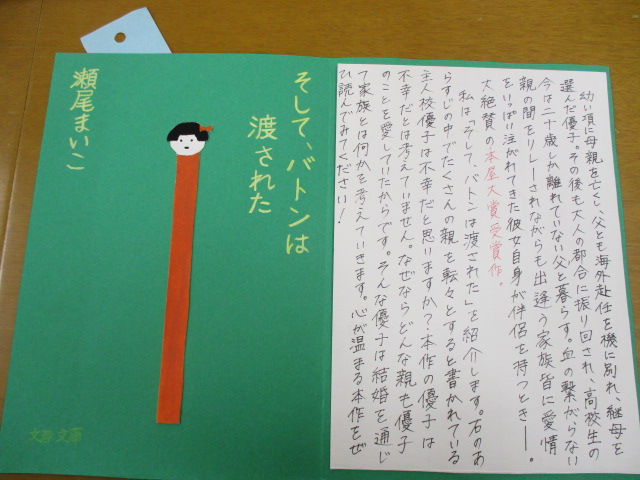 そして、バトンは
渡された
瀬尾まいこ
文春文庫
幼い頃に母親を亡くし、父とも海外赴任を機に別れ、継母を
選んだ優子。その後も大人の都合に振り回され、高校生の
今は二十歳しか離れていない父と暮らす。血の繋がらない
親の間をリレーされながらも出逢う家族皆に愛情
をいっぱい注がれてきた彼女自身が伴侶を持つとき――。
大絶賛の本屋大賞受賞作。
私は「そして、バトンは渡された」を紹介します。右のあ
らすじの中でたくさんの親を転々とすると書かれている
主人校優子は不幸だと思いますか?本作の優子は
不幸だとは考えていません。なぜならどんな親も優子
のことを愛していたからです。そんな優子は結婚を通じ
て家族とは何かを考えていきます。心が温まる本作をぜ
ひ読んでみてください!